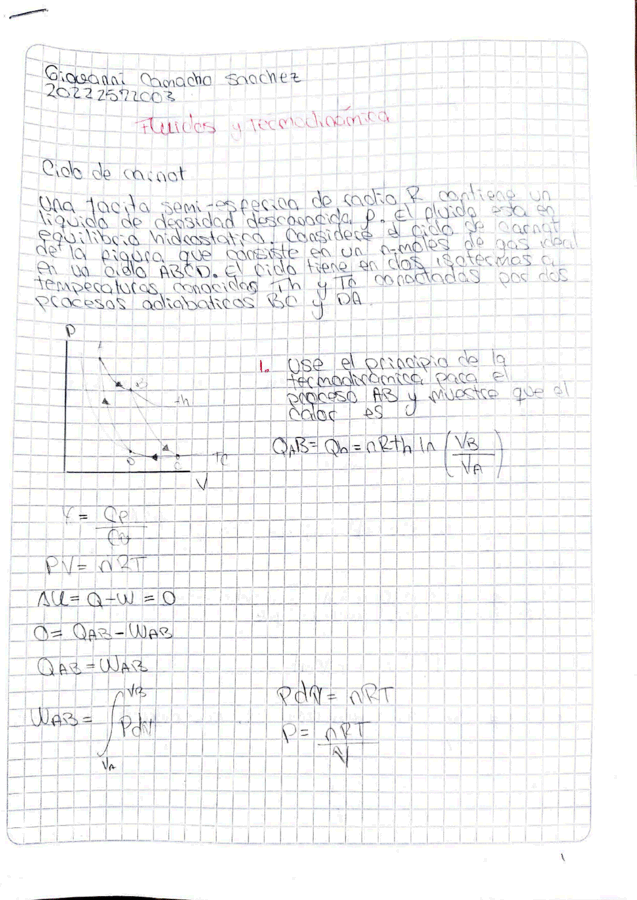 Giovanni Camacho Sanchez
20222572003
Fluidos y Termodinámica
Ciclo de
una tacita semi-esferica de radio R contiene un
liquido de densidad desconocida ρ. El fluido esa en
equilibrio hidrostatico. Considere el ciclo de carnot
de la figura que consiste en un n-moles de gas ideal
en un ciclo ABCD. El ciclo tiene en dos isotermas a
temperaturas conocidas Th y Tc conectadas por dos
procesos adiabaticos BC y DA
P
B
th
D
C
TC
V
1. Use el principio de la
termodinamica para el
proceso AB y muestre que el
calor es
QAB = Qh = nRth ln (VB/VA)
γ = Cp/Cv
PV = nRT
ΔU = Q - W = 0
0 = QAB - WAB
QAB = WAB
WAB = ∫ VA VB PdV
PdV = nRT
P = nRT/V
1